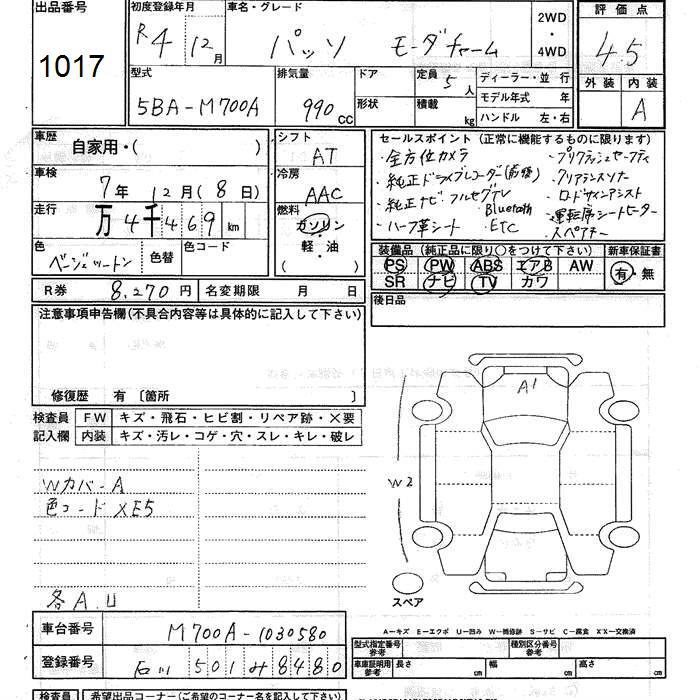 出品番号
1017
初度登録年月
R4 12月
車名・グレード
パッソ モーダチャーム
2WD
・
4WD
評価点
4.5
外装 内装
A
型式
5BA-M700A
排気量
990 CC
ドア
形状
定員 5 人
積載 kg
ディーラー・並行
モデル年式 年
ハンドル 左・右
車歴
自家用・( )
車検
7年 12月(8日)
走行
万4千469km
色
ベージュツートン
色替
色コード
シフト
AT
冷房
AAC
燃料
ガソリン
・
軽・油
( )
セールスポイント (正常に機能するものに限ります)
・全方位カメラ
・純正ドライブレコーダー(前後)
・純正ナビ・フルセグテレ
・Bluetooth
・ハーフ革シート ・ETC
・クリアランスソナー
・ロードサインアシスト
・運転席シートヒーター
・スペアキー
装備品 (純正品に限り○をつけて下さい)
新車保証書
PS PW ABS エアB AW
SR ナビ TV カワ
有・無
R券 8,270円
名変期限 月 日
後日品
注意事項申告欄(不具合内容等は具体的に記入して下さい)
修復歴 有 〔箇所 〕
検査員
記入欄
FW キズ・飛石・ヒビ割・リペア跡・×要
内装 キズ・汚レ・コゲ・穴・スレ・キレ・破レ
Wカバー A
色コード XE5
各A.U
A1
W2
スペア
A-キズ E-エクボ U-凹み W-補修跡 S-サビ C-腐食 XX-交換済
車台番号
M700A-1030580
登録番号
石川 501 み 8480
型式指定番号
参考
種別区分番号
参考
車庫証明用
参考
長さ cm
幅 cm
高さ cm
検査員
希望出品コーナー(ご希望のコーナー名を記入下さい)